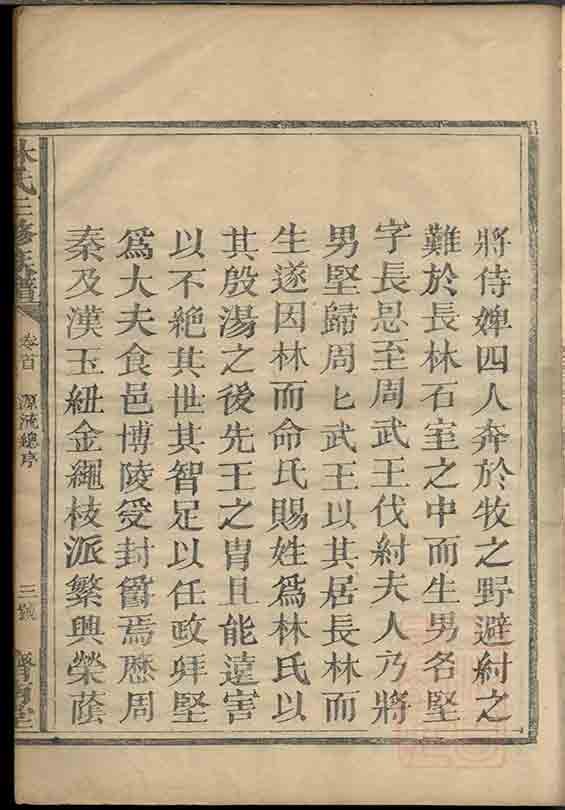 將侍婢四人奔於牧之野避紂之
難於長林石室之中而生男名堅
字長思至周武王伐紂夫人乃將
男堅歸周匕武王以其居長林而
生遂因林而命氏賜姓爲林氏以
其殷湯之後先王之胄且能遠害
以不絶其世其智足以任政拜堅
爲大夫食邑博陵受封爵焉歷周
秦及漢玉紐金繩枝派繁興榮蔭
林氏三修族譜
卷首
源流總序
三號